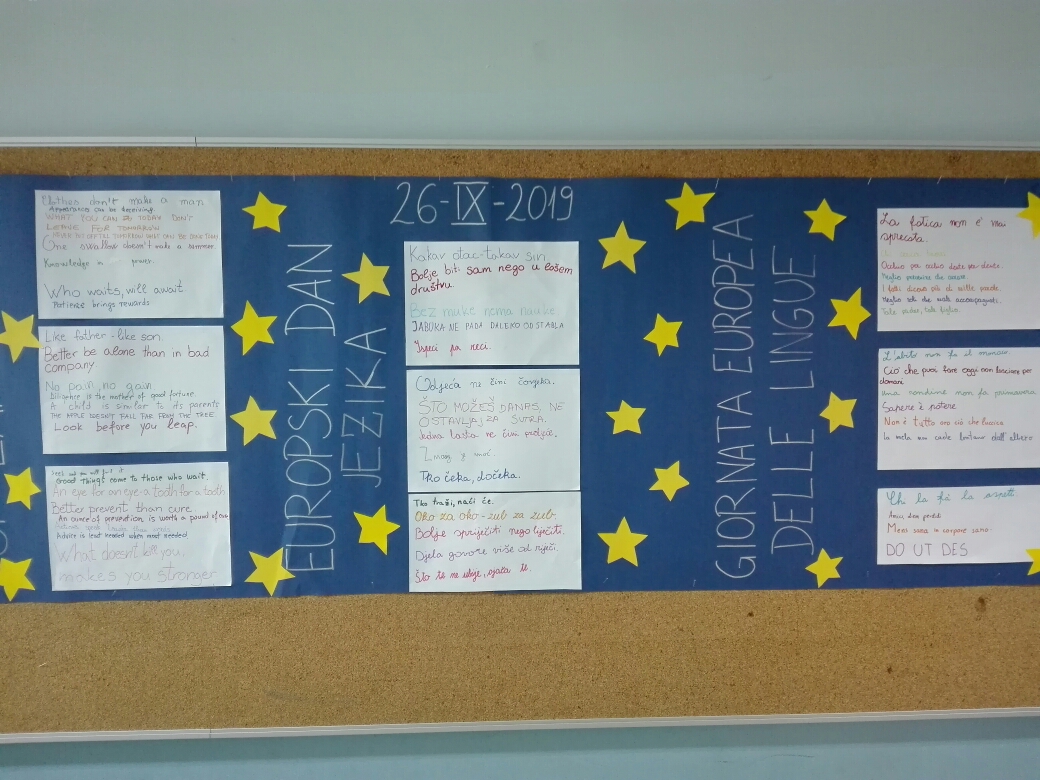 Clothes don't make a man
Appearance can be deceiving.
WHAT YOU CAN DO TODAY DON'T
LEAVE FOR TOMORROW
NEVER PUT OFF TILL TOMORROW WHAT CAN BE DONE TODAY
One swallow doesn't make a summer.
Knowledge is power.
Who waits, will await
Patience brings rewards
Like father-like son.
Better be alone than in bad
company
No pain, no gain
Diligence is the mother of good fortune
A child is similar to its parents
THE APPLE DOESN'T FALL FAR FROM THE TREE
Look before you leap.
Seek and you will find it
Good things come to those who wait.
An eye for an eye-a tooth for a tooth
Better prevent than cure
An ounce of prevention, is worth a pound of cure
Advice is least heeded when most needed
What doesn't kill you,
makes you stronger
EUROPSKI DAN
JEZIKA
26-IX-2019
Kakav otac-takav sin
Bolje biti sam nego u lošem
društvu.
Bez muke nema nauke
JABUKA NE PADA DALEKO OD STABLA
Ispeci pa reci.
Odjeća ne čini čovjeka.
ŠTO MOŽEŠ DANAS, NE
OSTAVLJAJ ZA SUTRA.
Jedna lasta ne čini proljeće.
Znanje je moć.
Tko čeka, dočeka.
Tko traži, naći će.
Oko za oko-zub za zub.
Bolje spriječiti nego liječiti.
Djela govore više od riječi.
Što te ne ubije, ojača te.
GIORNATA EUROPEA
DELLE LINGUE
La fatica non è mai
sprecata.
Occhio per occhio dente per dente.
Meglio prevenire che curare.
I fatti dicono più di mille parole.
Meglio soli che male accompagnati.
Tale padre, tale figlio.
L'abito non fa il monaco
Ciò che puoi fare oggi non lasciare per
domani
una rondine non fa primavera
Sapere è potere
Non è tutto oro ciò che luccica
la mela non cade lontano dall'albero
Chi la fa la aspetti
Mens sana in corpore sano
DO UT DES